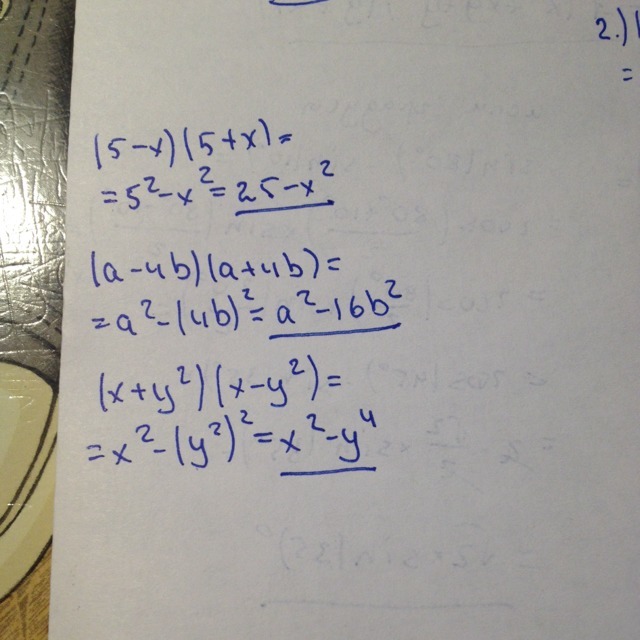 (5-x)(5+x)=
=5²-x²=25-x²
(a-4b)(a+4b)=
=a²-(4b)²=a²-16b²
(x+y²)(x-y²)=
=x²-(y²)²=x²-y⁴
2.)
=